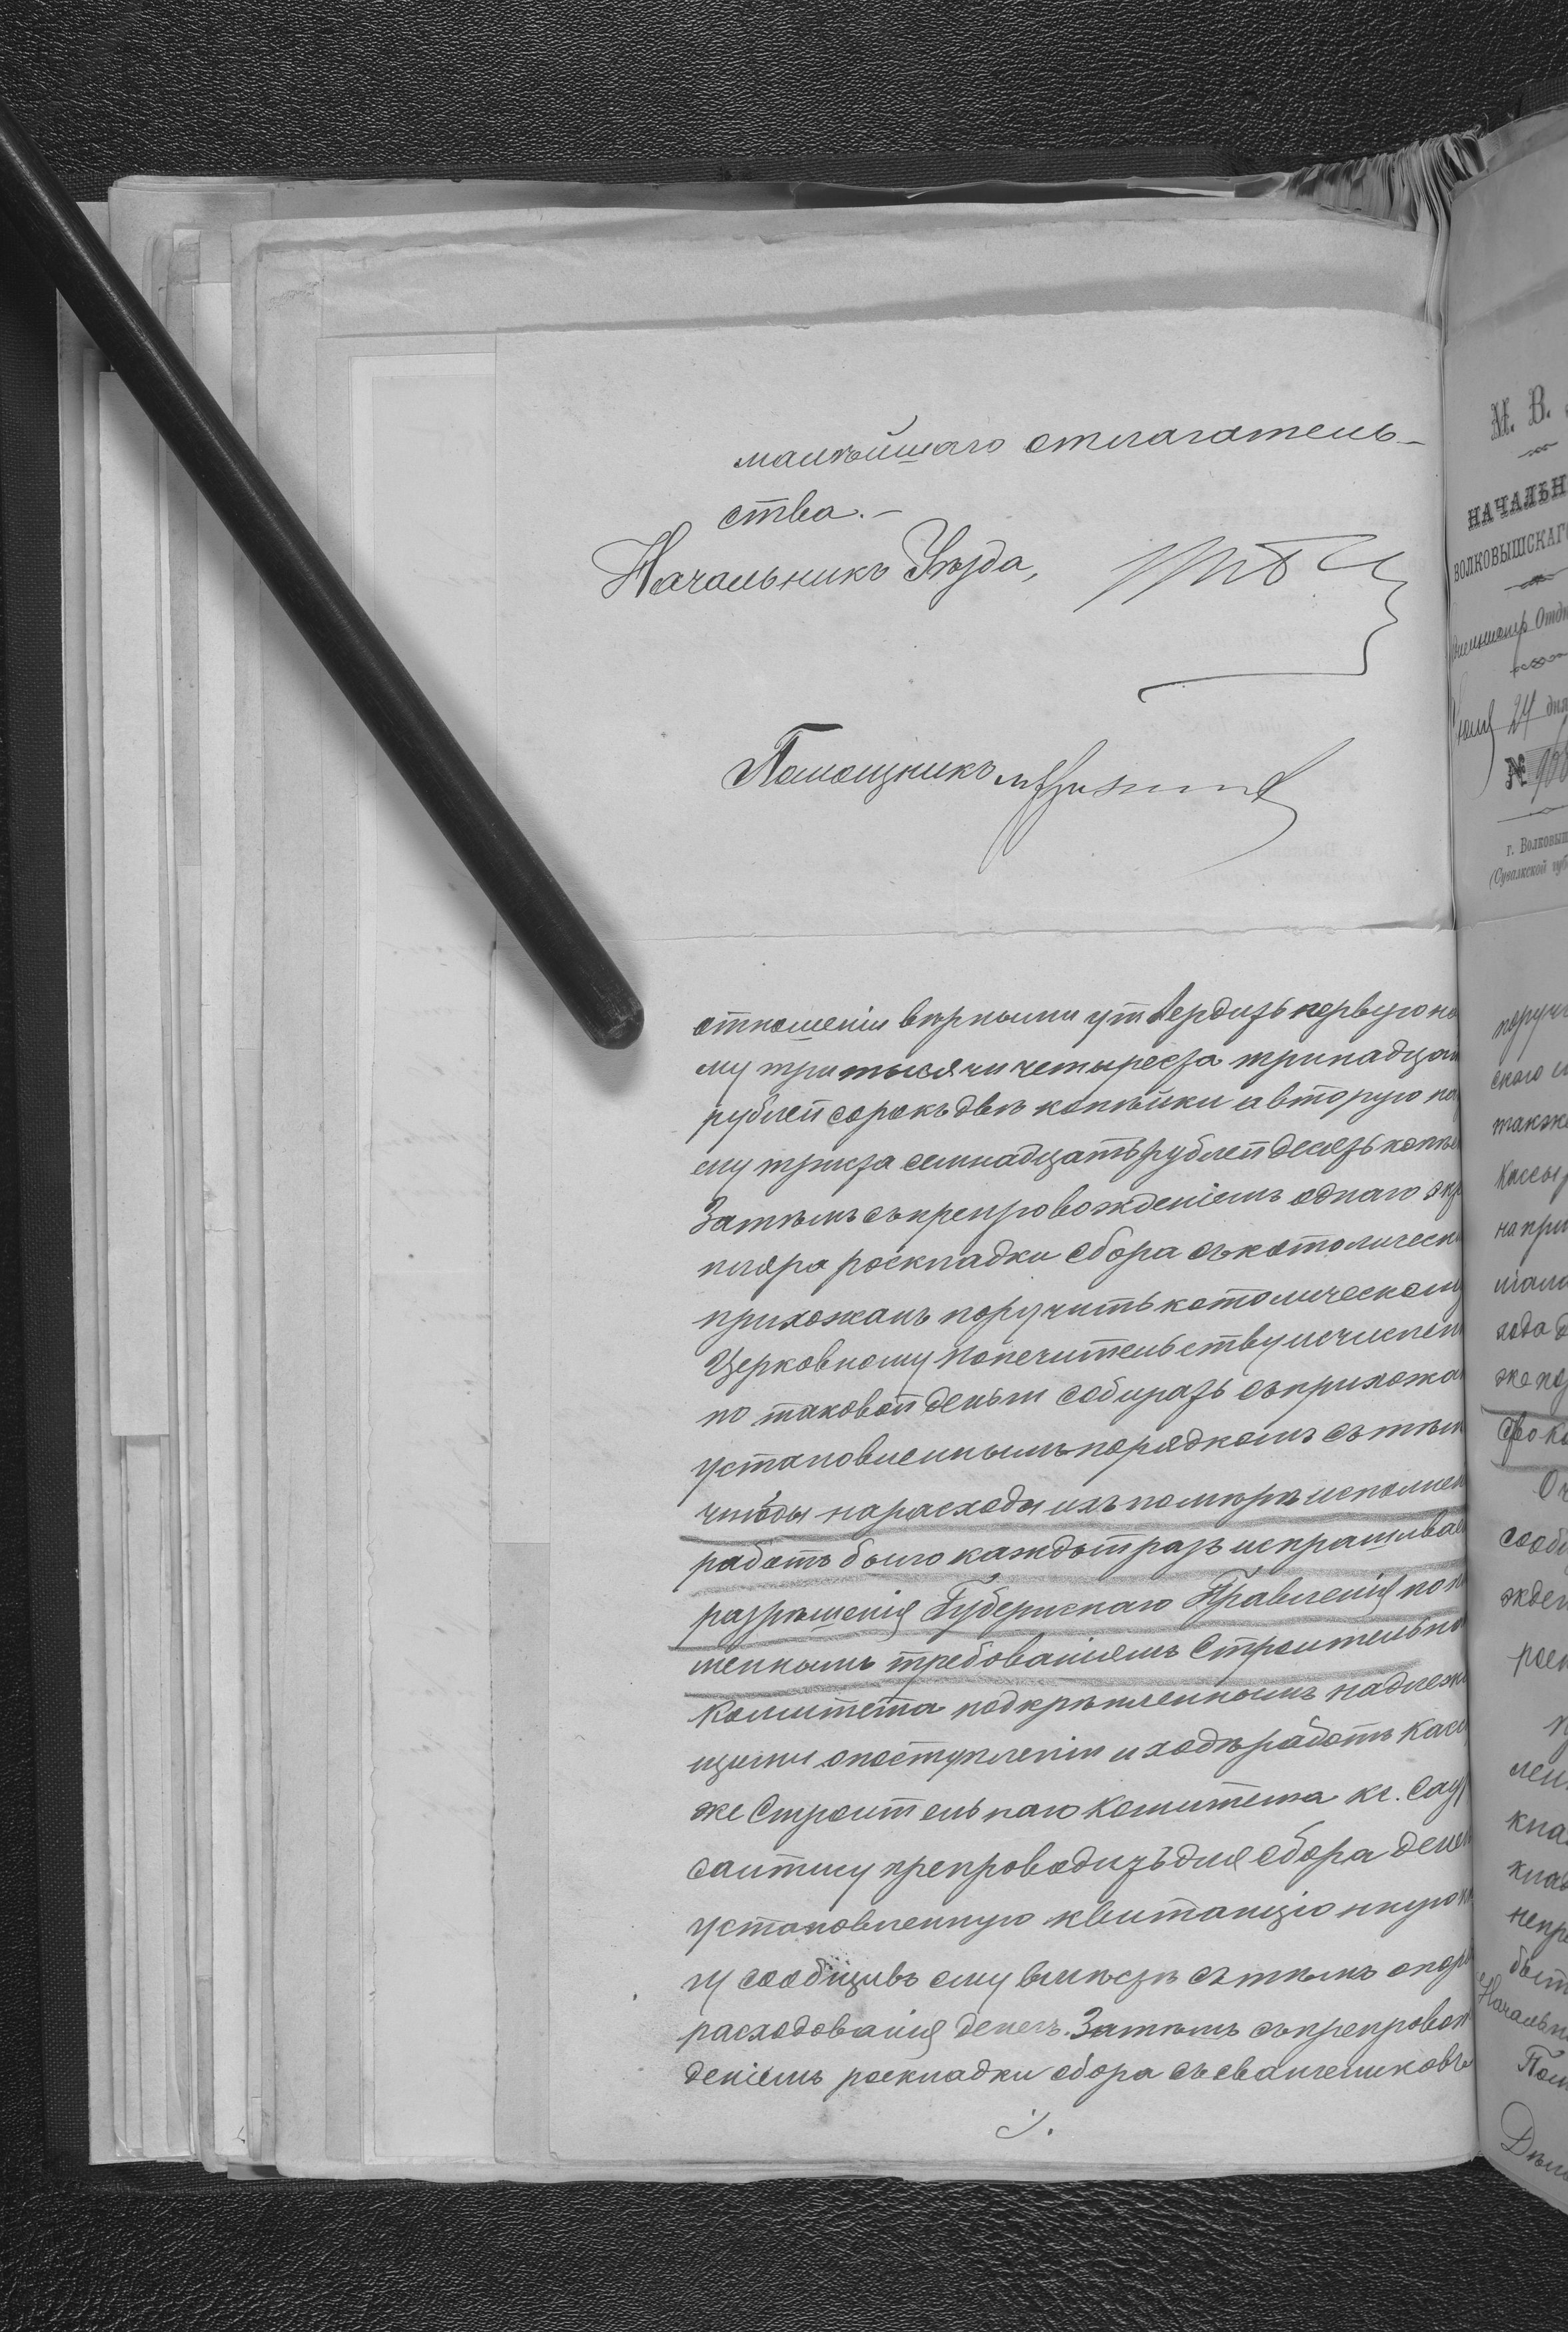 малѣйшаго отлагатель-
ства.-
Начальникъ Уѣзда,
Помощникъ
отношеніи вѣрными утвердить первую на
му три тысячи четыреста тринадцат
рублей сорокъ двѣ копѣйки а вторую на
му триста семнадцать рублей десять копѣ
Затѣмъ съ препровожденіемъ однаго экз
пляра роскладки сбора съ католическ
прихожанъ поручить католическому
Церковному попечительству исчислен
по таковой деньги собирать съ прихожа
установленнымъ порядкомъ съ тѣм
чтобы на расходы ихъ по мѣрѣ исполнен
работъ было каждый разъ испрашивае
разрѣшенія Губернскаго Правленія по
меннымъ требованіямъ Строительна
Комитета подкрѣпленнымъ надлежа
щими о поступленіи и ходѣ работъ Касс
же Строительнаго Комитета кс.
препроводить для сбора денег
установленную квитанціонную кн
гу сообщивъ ему вмѣстѣ съ тѣмъ о поря
расходованія денегъ. Затѣмъ съ препровож
деніемъ роскладки сбора съ евангеликовъ
./.
М. В.
НАЧАЛЬН
ВОЛКОВЫШСКАГО
Отдѣ
24 дня
№
г. Волковыш
(Сувалкской губ
поруч
скаго
также
Кассы
на при
хода д
же по
сроко
сооб
жден
роск
лен
кла
непре
быт
Начальн
Пом
Дѣло